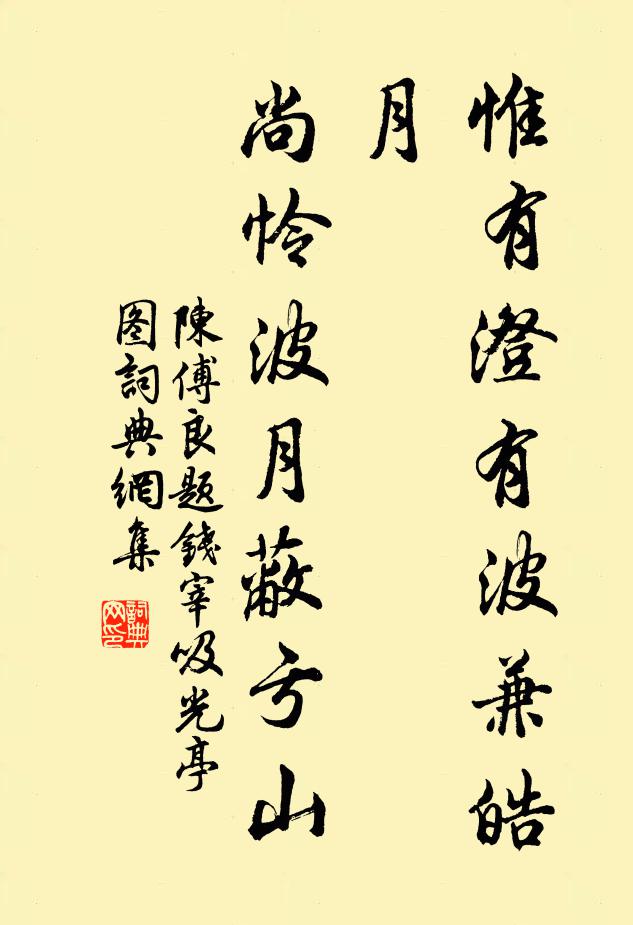 惟有澄有波兼皓
月
尚怜波月蔽亏山
陳傅良题錢宰吸光亭
图詞典網集
詞典網印